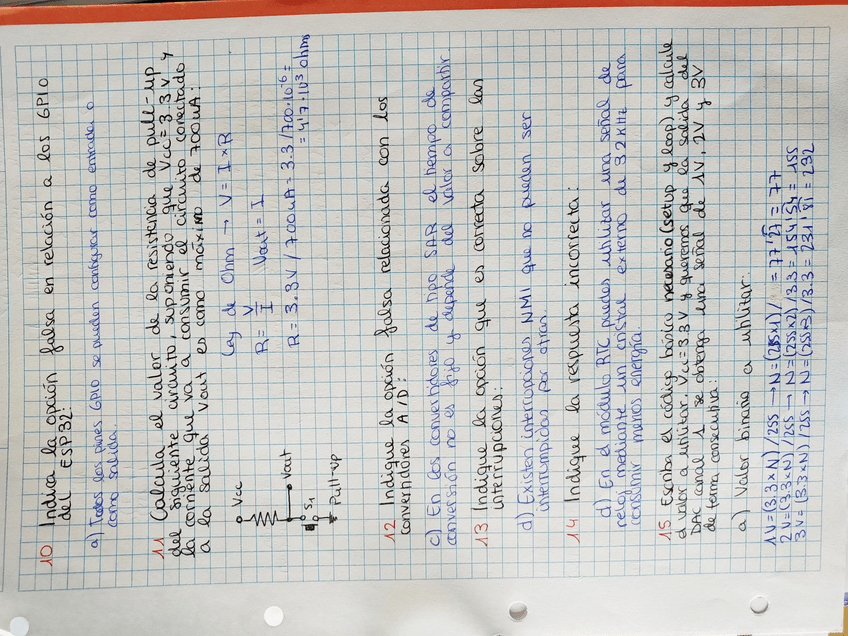 10 Indica la opción falsa en relación a los GPIO
del ESP32:
a) Todos los pines GPIO se pueden configurar como entrada o
como salida.
11 Calcula el valor de la resistencia de pull-up
del siguiente circuito, suponiendo que Vcc = 3.3V y
la corriente que va a consumir el circuito conectado
a la salida Vout es como máximo de 700uA:
Vcc
Vout
S1
Pull-up
Ley de Ohm → V = I × R
R = V/I Vout = I
R = 3.3V / 700uA = 3.3/700·10^-6 =
= 4'7·10^3 ohm
12 Indique la opción falsa relacionada con los
convertidores A/D:
c) En los convertidores de tipo SAR el tiempo de
conversión no es fijo y depende del valor a compartir.
13 Indique la opción que es correcta sobre las
interrupciones:
d) Existen interrupciones NMI que no pueden ser
interrumpidas por otras.
14 Indique la respuesta incorrecta:
d) En el módulo RTC puedes utilizar una señal de
reloj mediante un cristal externo de 32KHz para
consumir menos energía.
15 Escriba el código básico necesario (setup y loop) y calcule
el valor a utilizar. Vcc = 3.3V y queremos que la salida del
DAC canal 1 se obtenga una señal de 1V, 2V y 3V
de forma consecutiva:
a) Valor binario a utilizar:
1V = (3.3×N)/255 → N = (255×1)/ = 77'27 = 77
2V = (3.3×N)/255 → N = (255×2)/3.3 = 154'54 = 155
3V = (3.3×N)/255 → N = (255×3)/3.3 = 231'81 = 232